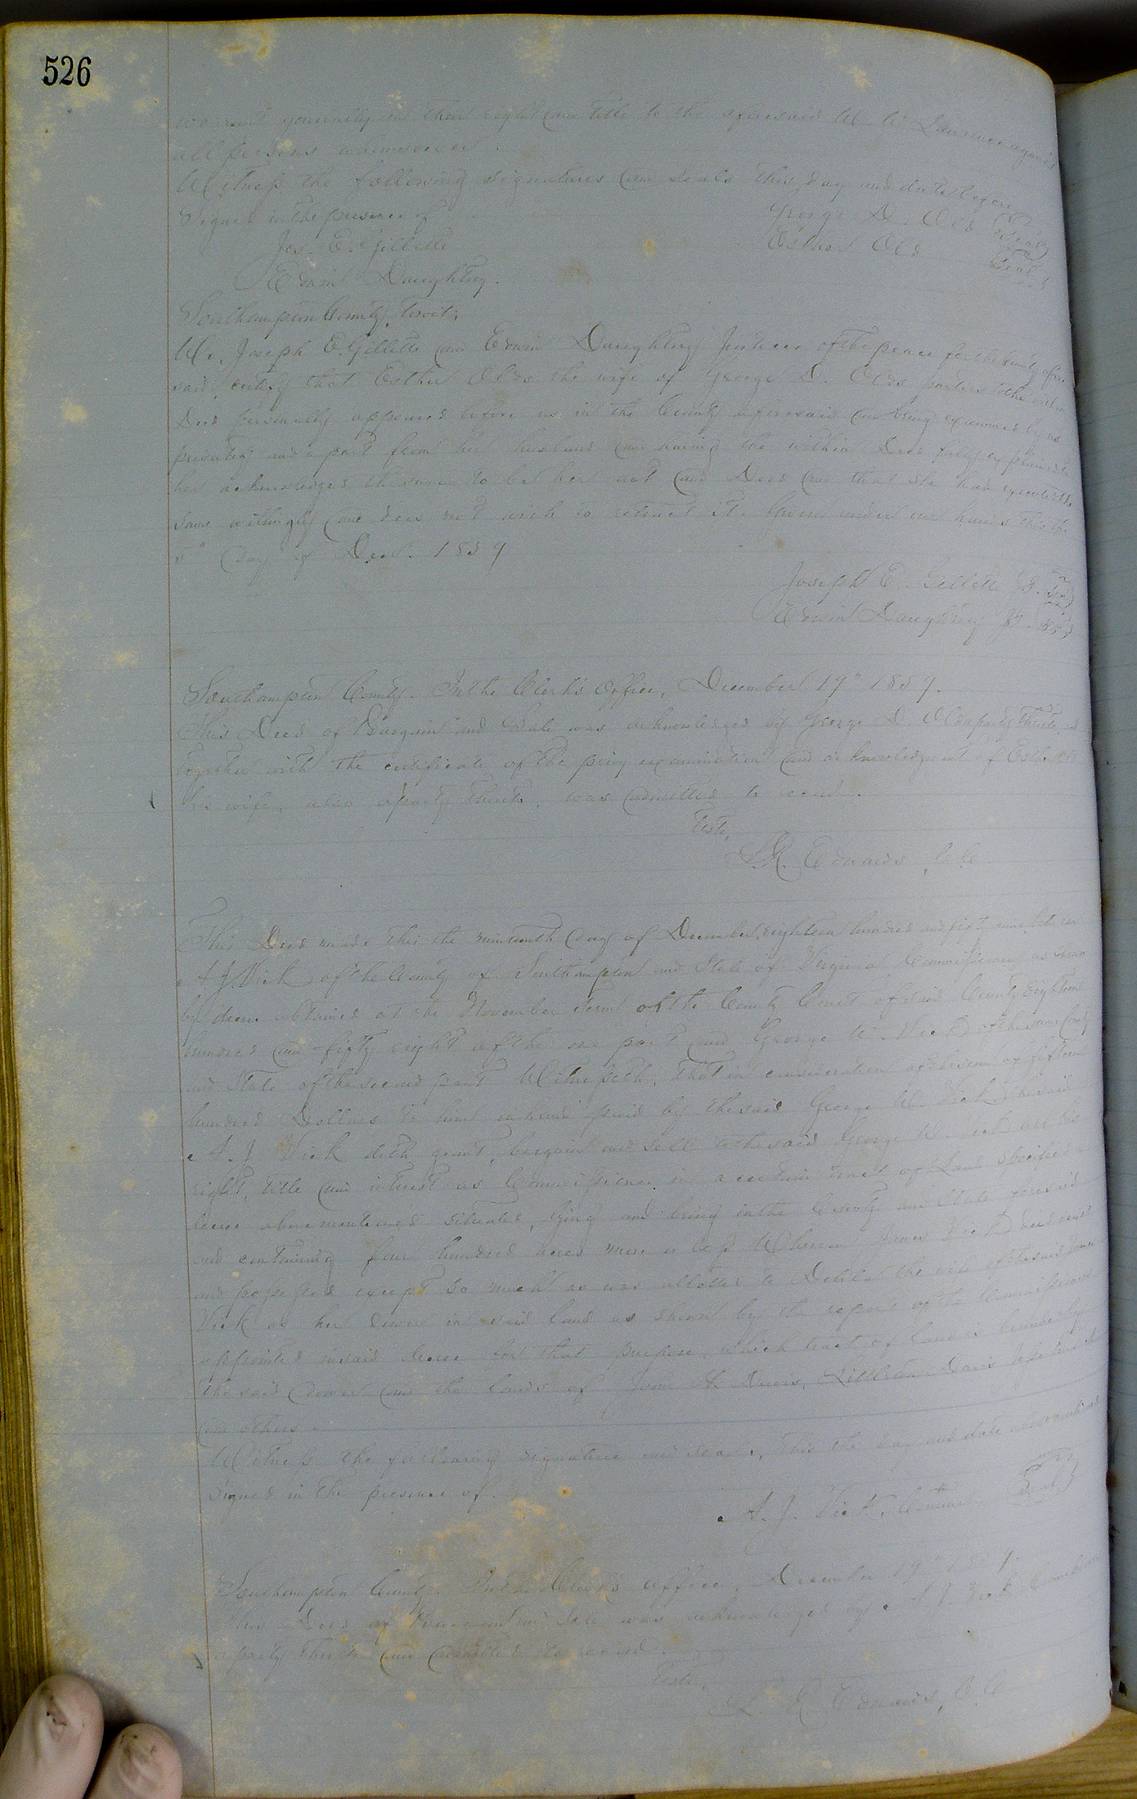 526
warrant generally and their right and title to the aforesaid W. W. Laurence against
all persons whomsoever.
Witness the following signatures and seals this day and date before
Signed in the presence of
George D. Olds Seal
Jos. E. Gillette
Esther Olds Seal
Edwin Daughtrey.
Southampton County, towit;
We, Joseph E. Gillette and Edwin Daughtrey Justices of the peace for the County afore
said, certify that Esther Olds the wife of George D. Olds parties to the within
Deed personally appeared before us in the County aforesaid and being examined by us
privately and apart from her husband and having the within Deed fully explained to
her acknowledged the same to be her act and Deed and that she had executed the
same willingly and does not wish to retract it. Given under our hands this the
5" day of Decr. 1859
Joseph E. Gillette J.P. Seal
Edwin Daughtrey J.P. Seal
Southampton County. In the Clerk's Office, December 19" 1859.
This Deed of Bargain and Sale was acknowledged by George D. Olds party thereto, and
together with the certificate of the privy examination and acknowledgment of Esther
his wife, also a party thereto, was admitted to record.
Teste,
L. R. Edwards, C. C.
This Deed made this the nineteenth day of December, eighteen hundred and fifty nine between
A. J. Vick of the County of Southampton and State of Virginia Commissioner as shown
by decree obtained at the November Term of the County Court of said County eighteen
hundred and fifty eight of the one part and George W. Vick of the same County
and State of the second part Witnesseth, that in consideration of the sum of fifteen
hundred Dollars to him in hand paid by the said George W. Vick the said
A. J. Vick doth grant, bargain and sell to the said George W. Vick all his
right, title and interest as Commissioner in a certain tract of Land specified in
decree above mentioned situated, lying and being in the County and State foresaid
and containing four hundred acres more or less Whereon James Vick died seized
and possessed except so much as was allotted to Delilah the wife of the said James
Vick as her dower in said land as shown by the report of the Commissioners
appointed in said decree for that purpose, which tract of land is bounded by
the said dower and the lands of Davis
and others.
Witness the following signature and seal, this the day and date
Signed in the presence of
A. J. Vick, Seal
Southampton County. In the Clerk's Office, December 19" 1859.
This Deed of Bargain and Sale was acknowledged by A. J. Vick
a party thereto and admitted to record.
Teste,
L. R. Edwards, C. C.